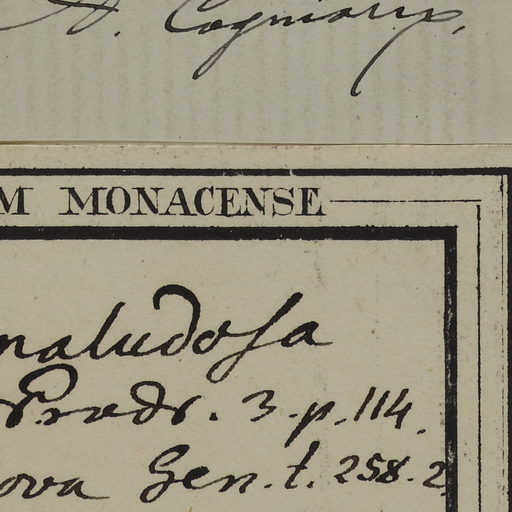 A. Cogniaux,
M MONACENSE
paludosa
Prodr. 3. p. 114.
ova Gen. t. 258. 2